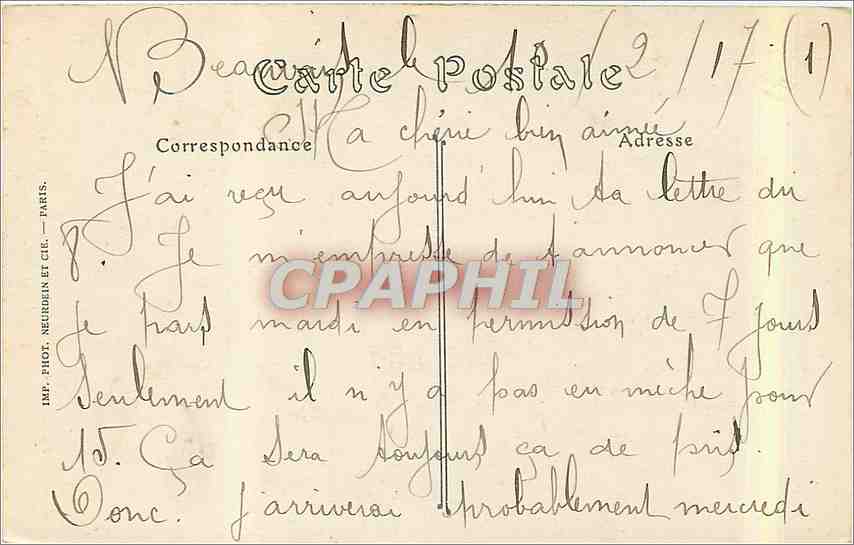 Beauvais, le 10/2/17 (1)
Carte Postale
Ma chérie bien aimée
Correspondance
Adresse
J'ai reçu aujourd'hui ta lettre du
8. Je m'empresse de t'annoncer que
je pars mardi en permission de 7 jours
seulement il n'y a pas eu mèche pour
15. Ça sera toujours ça de pris.
Donc. j'arriverai probablement mercredi
IMP. PHOT. NEURDEIN ET CIE. — PARIS.
CPAPHIL